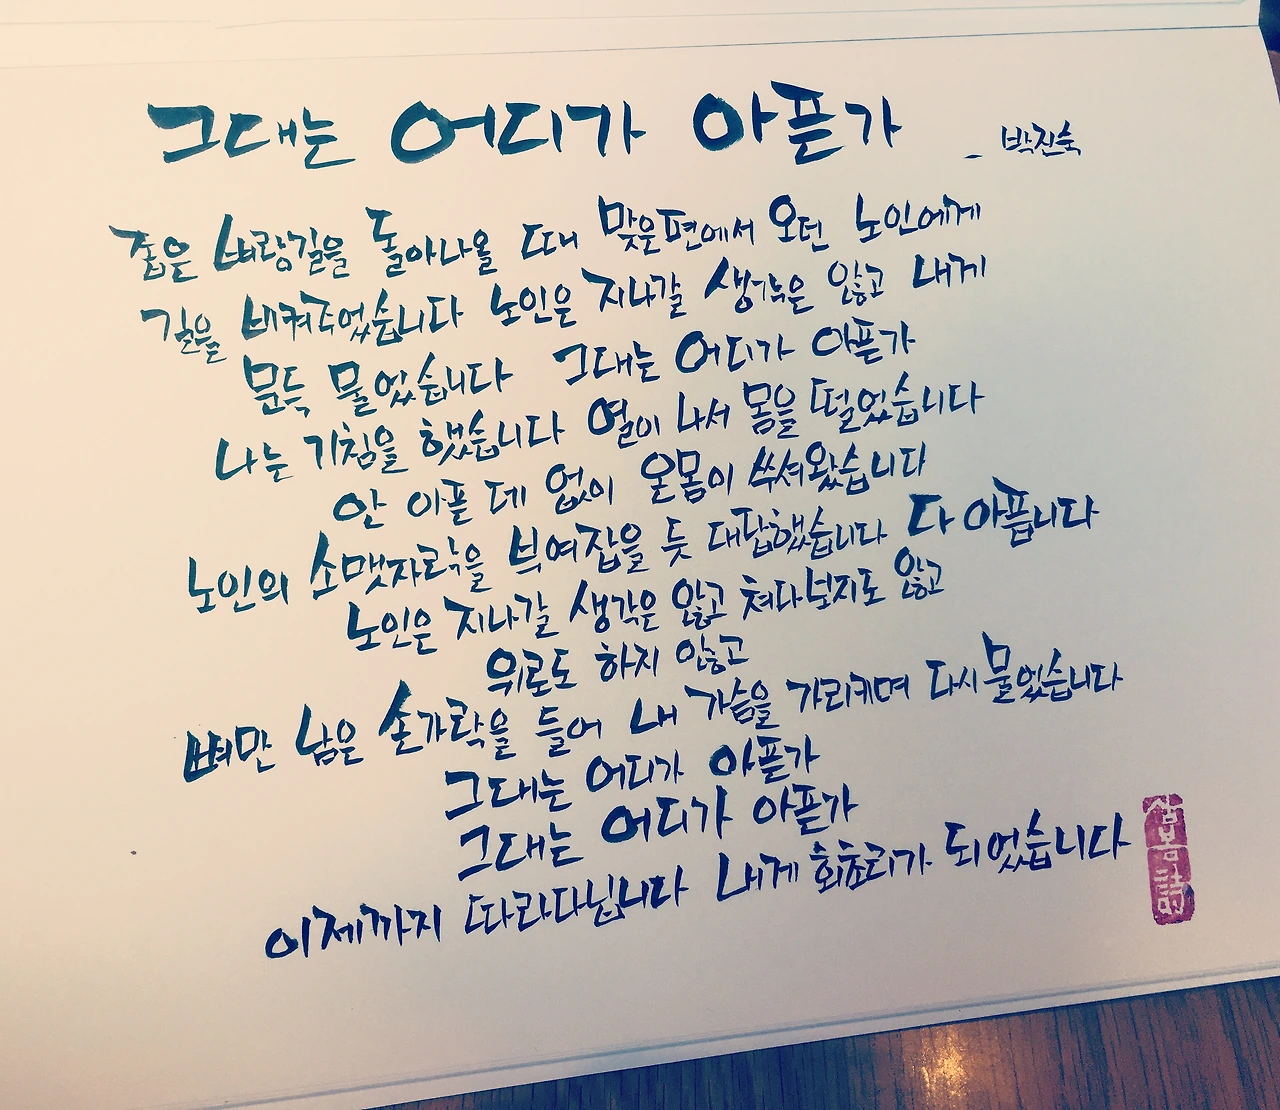 그대는 어디가 아픈가
- 박진숙
좁은 벼랑길을 돌아나올 때 맞은편에서 오던 노인에게
길을 비켜주었습니다 노인은 지나갈 생각은 않고 내게
문득 물었습니다 그대는 어디가 아픈가
나는 기침을 했습니다 열이 나서 몸을 떨었습니다
안 아픈 데 없이 온몸이 쑤셔왔습니다
노인의 소맷자락을 브여잡을 듯 대답했습니다 다 아픕니다
노인은 지나갈 생각은 않고 쳐다보지도 않고
위로도 하지 않고
뼈만 남은 손가락을 들어 내 가슴을 가리키며 다시 물었습니다
그대는 어디가 아픈가
그대는 어디가 아픈가
이제까지 따라다닙니다 내게 회초리가 되었습니다